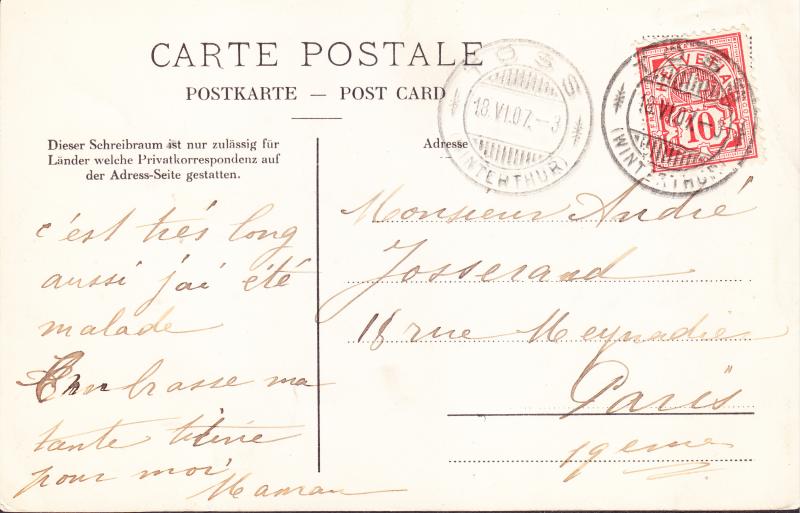 CARTE POSTALE
POSTKARTE — POST CARD
Dieser Schreibraum ist nur zulässig für
Länder welche Privatkorrespondenz auf
der Adress-Seite gestatten.
Adresse
TÖSS
18.VI.07.–3
(WINTERTHUR)
HELVETIA
10
TÖSS
18.VI.07.–3
(WINTERTHUR)
c'est très long
aussi j'ai été
malade
Embrasse ma
tante titine
pour moi
Maman
Monsieur André
Josserand
18 rue Meynadier
Paris
19eme